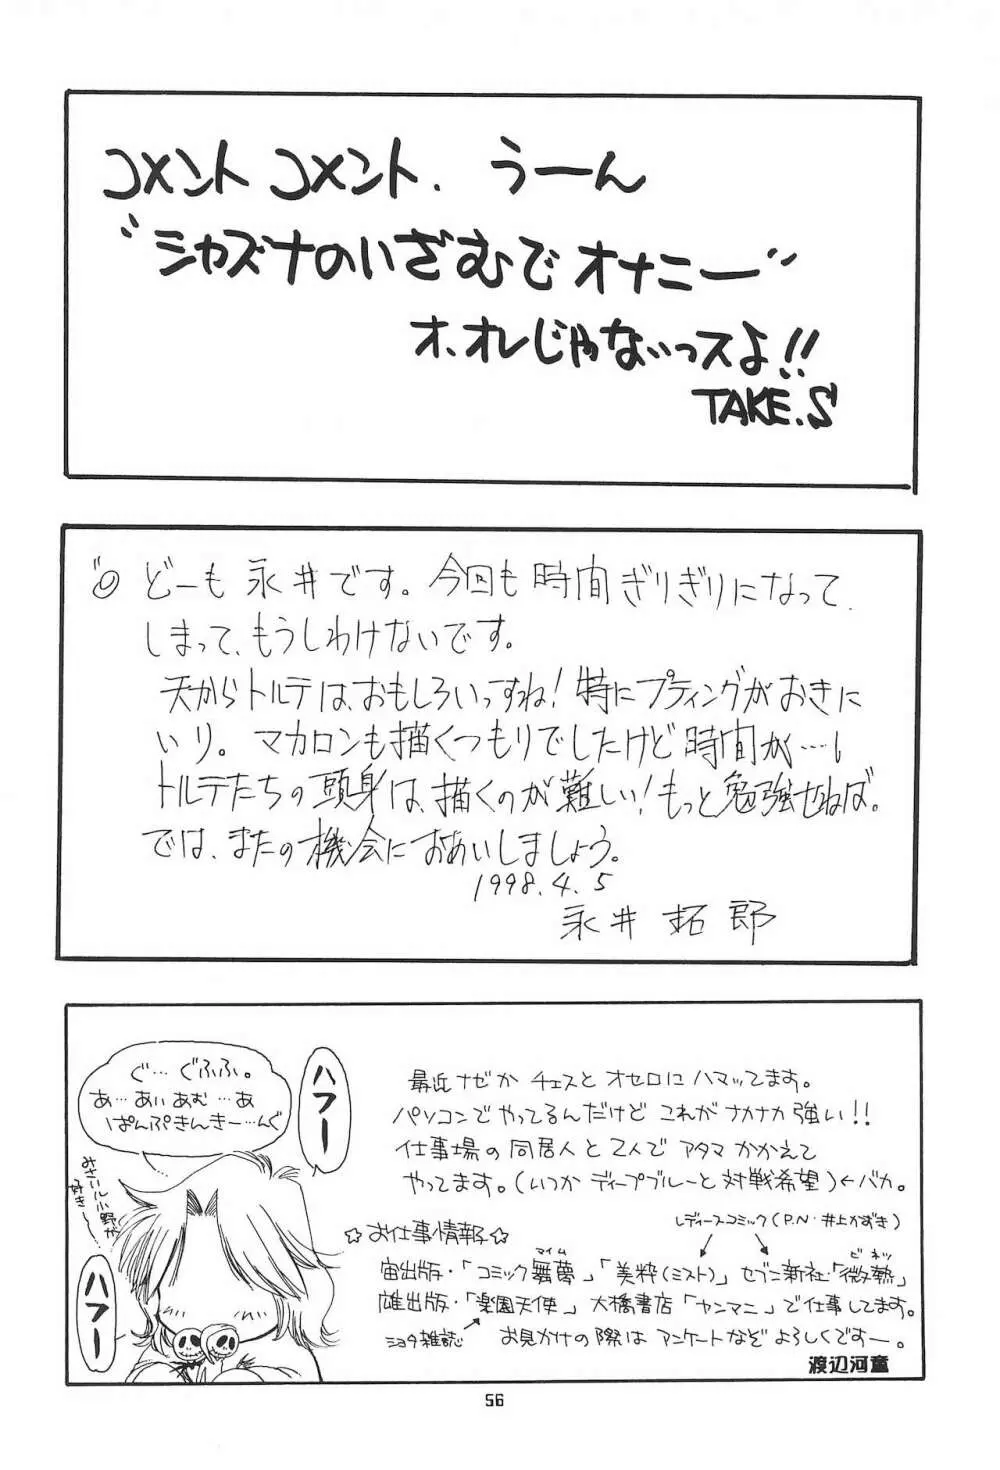 コメント コメント. うーん
"シャズナのいざむでオナニー"
オ、オレじゃないっスよ!!
TAKE.S
どーも 永井です。今回も時間ぎりぎりになって
しまって、もうしわけないです。
天からトルテは、おもしろいっすね!特にプティングがおきに
いり。マカロンも描くつもりでしたけど時間が…。
トルテたちの頭身は、描くのが難しい!もっと勉強せねば。
では、またの機会におあいしましょう。
1998.4.5
永井 拓郎
ぐ… ぐふふ。
あ… あい あむ … あ
ぱんぷきんきー…んぐ
ハフー
みさいル小野が
好き
ハフー
最近 ナゼか チェスと オセロに ハマッてます。
パソコンで やってるんだけど これが ナカナカ 強い!!
仕事場の 同居人 と 2人で アタマ かかえて
やってます。(いつか ディープブルーと 対戦希望)←バカ。
レディースコミック(P.N・井上かずき)
☆お仕事情報☆
マイム
ビネツ
宙出版・「コミック舞夢」「美粋(ミスト)」セブン新社「微熱」
雄出版・「楽園天使」 大橋書店「ヤンマニ」で仕事してます。
ショタ雑誌
お見かけの際は アンケートなぞ よろしくですー。
渡辺河童
56